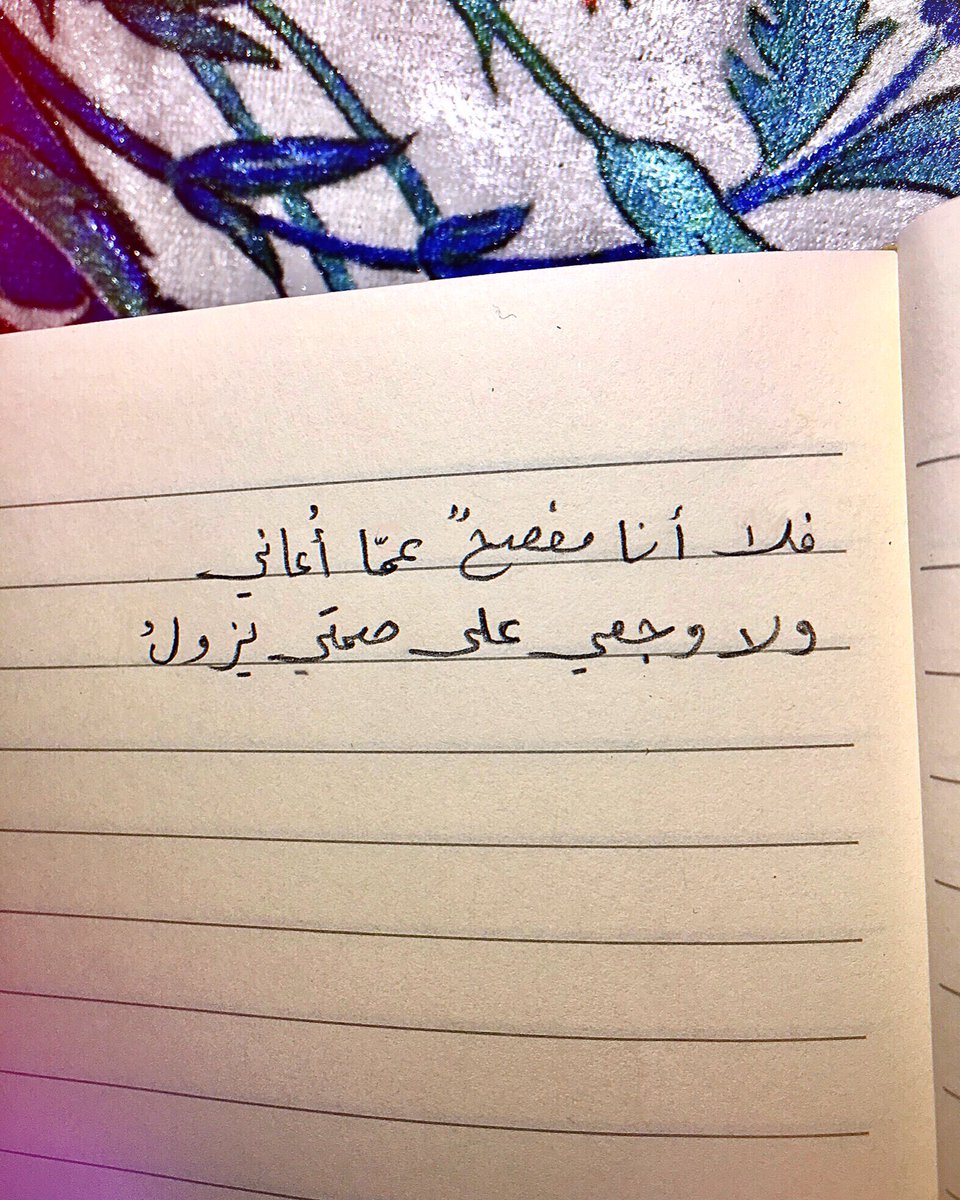 فلا أنا مفصحٌ عمّا أُعاني
ولا وجعي على صمتي يزولُ